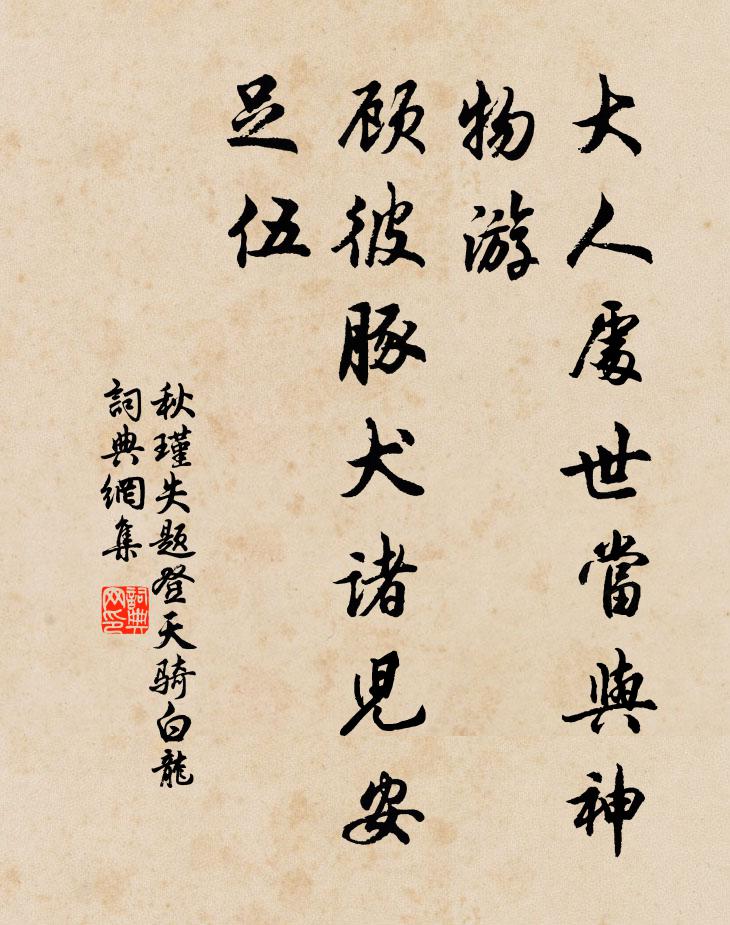 大人處世當與神
物游
顧彼豚犬諸児安
足伍
秋瑾失題登天骑白龍
詞典網集
詞典
网印